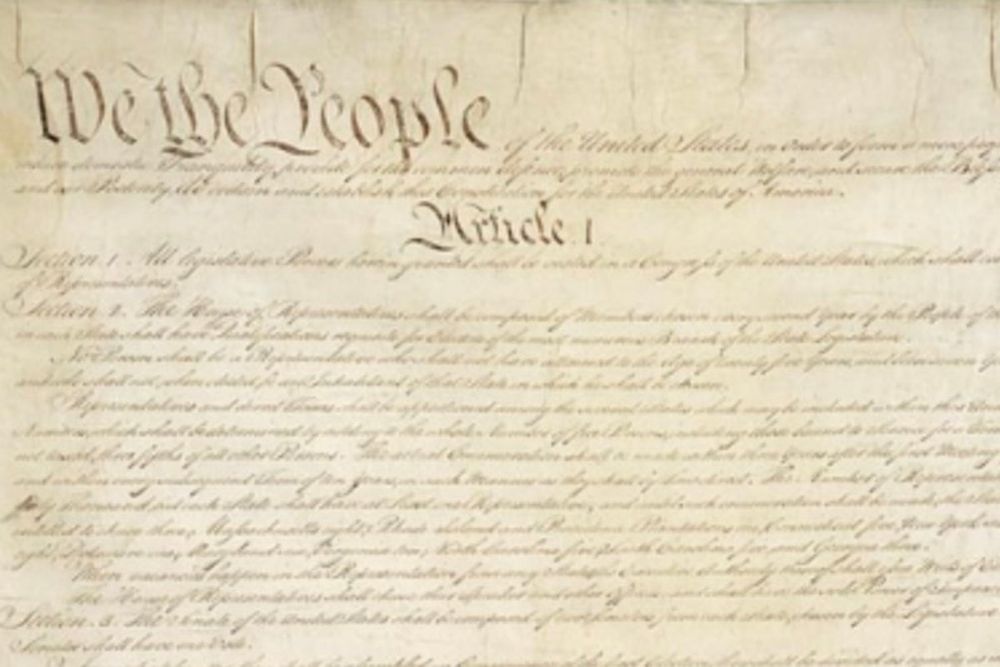 We the People of the United States, in Order to form a more
insure domestic Tranquility, provide for the common defence, promote the general Welfare, and secure the
and our Posterity, do ordain and establish this Constitution for the United States of America.
Article I
Section 1. All legislative Powers herein granted shall be vested in a Congress of the United States, which shall
of Representatives.
Section 2. The House of Representatives shall be composed of Members chosen every second Year by the People of
in each State shall have Qualifications requisite for Electors of the most numerous Branch of the State Legislature.
No Person shall be a Representative who shall not have attained to the Age of twenty five Years, and
and who shall not, when elected, be an Inhabitant of that State in which he shall be chosen.
Representatives and direct Taxes shall be apportioned among the several States which may be included within this
Numbers, which shall be determined by adding to the whole Number of free Persons, including those bound to Service for a
not taxed, three fifths of all other Persons. The actual Enumeration shall be made within three Years after the first Meeting
and within every subsequent Term of ten Years, in such Manner as they shall by Law direct. The Number of
thirty Thousand, but each State shall have at Least one Representative; and until such enumeration shall be made, the
entitled to chuse three, Massachusetts eight, Rhode Island and Providence Plantations one, Connecticut five, New York
eight, Delaware one, Maryland six, Virginia ten, North Carolina five, South Carolina five, and Georgia three.
When vacancies happen in the Representation from any State, the Executive Authority thereof shall issue Writs of
The House of Representatives shall chuse their Speaker and other Officers; and shall have the sole Power of
Section 3. The Senate of the United States shall be composed of two Senators from each State, chosen by the Legislature
Senator shall have one Vote.